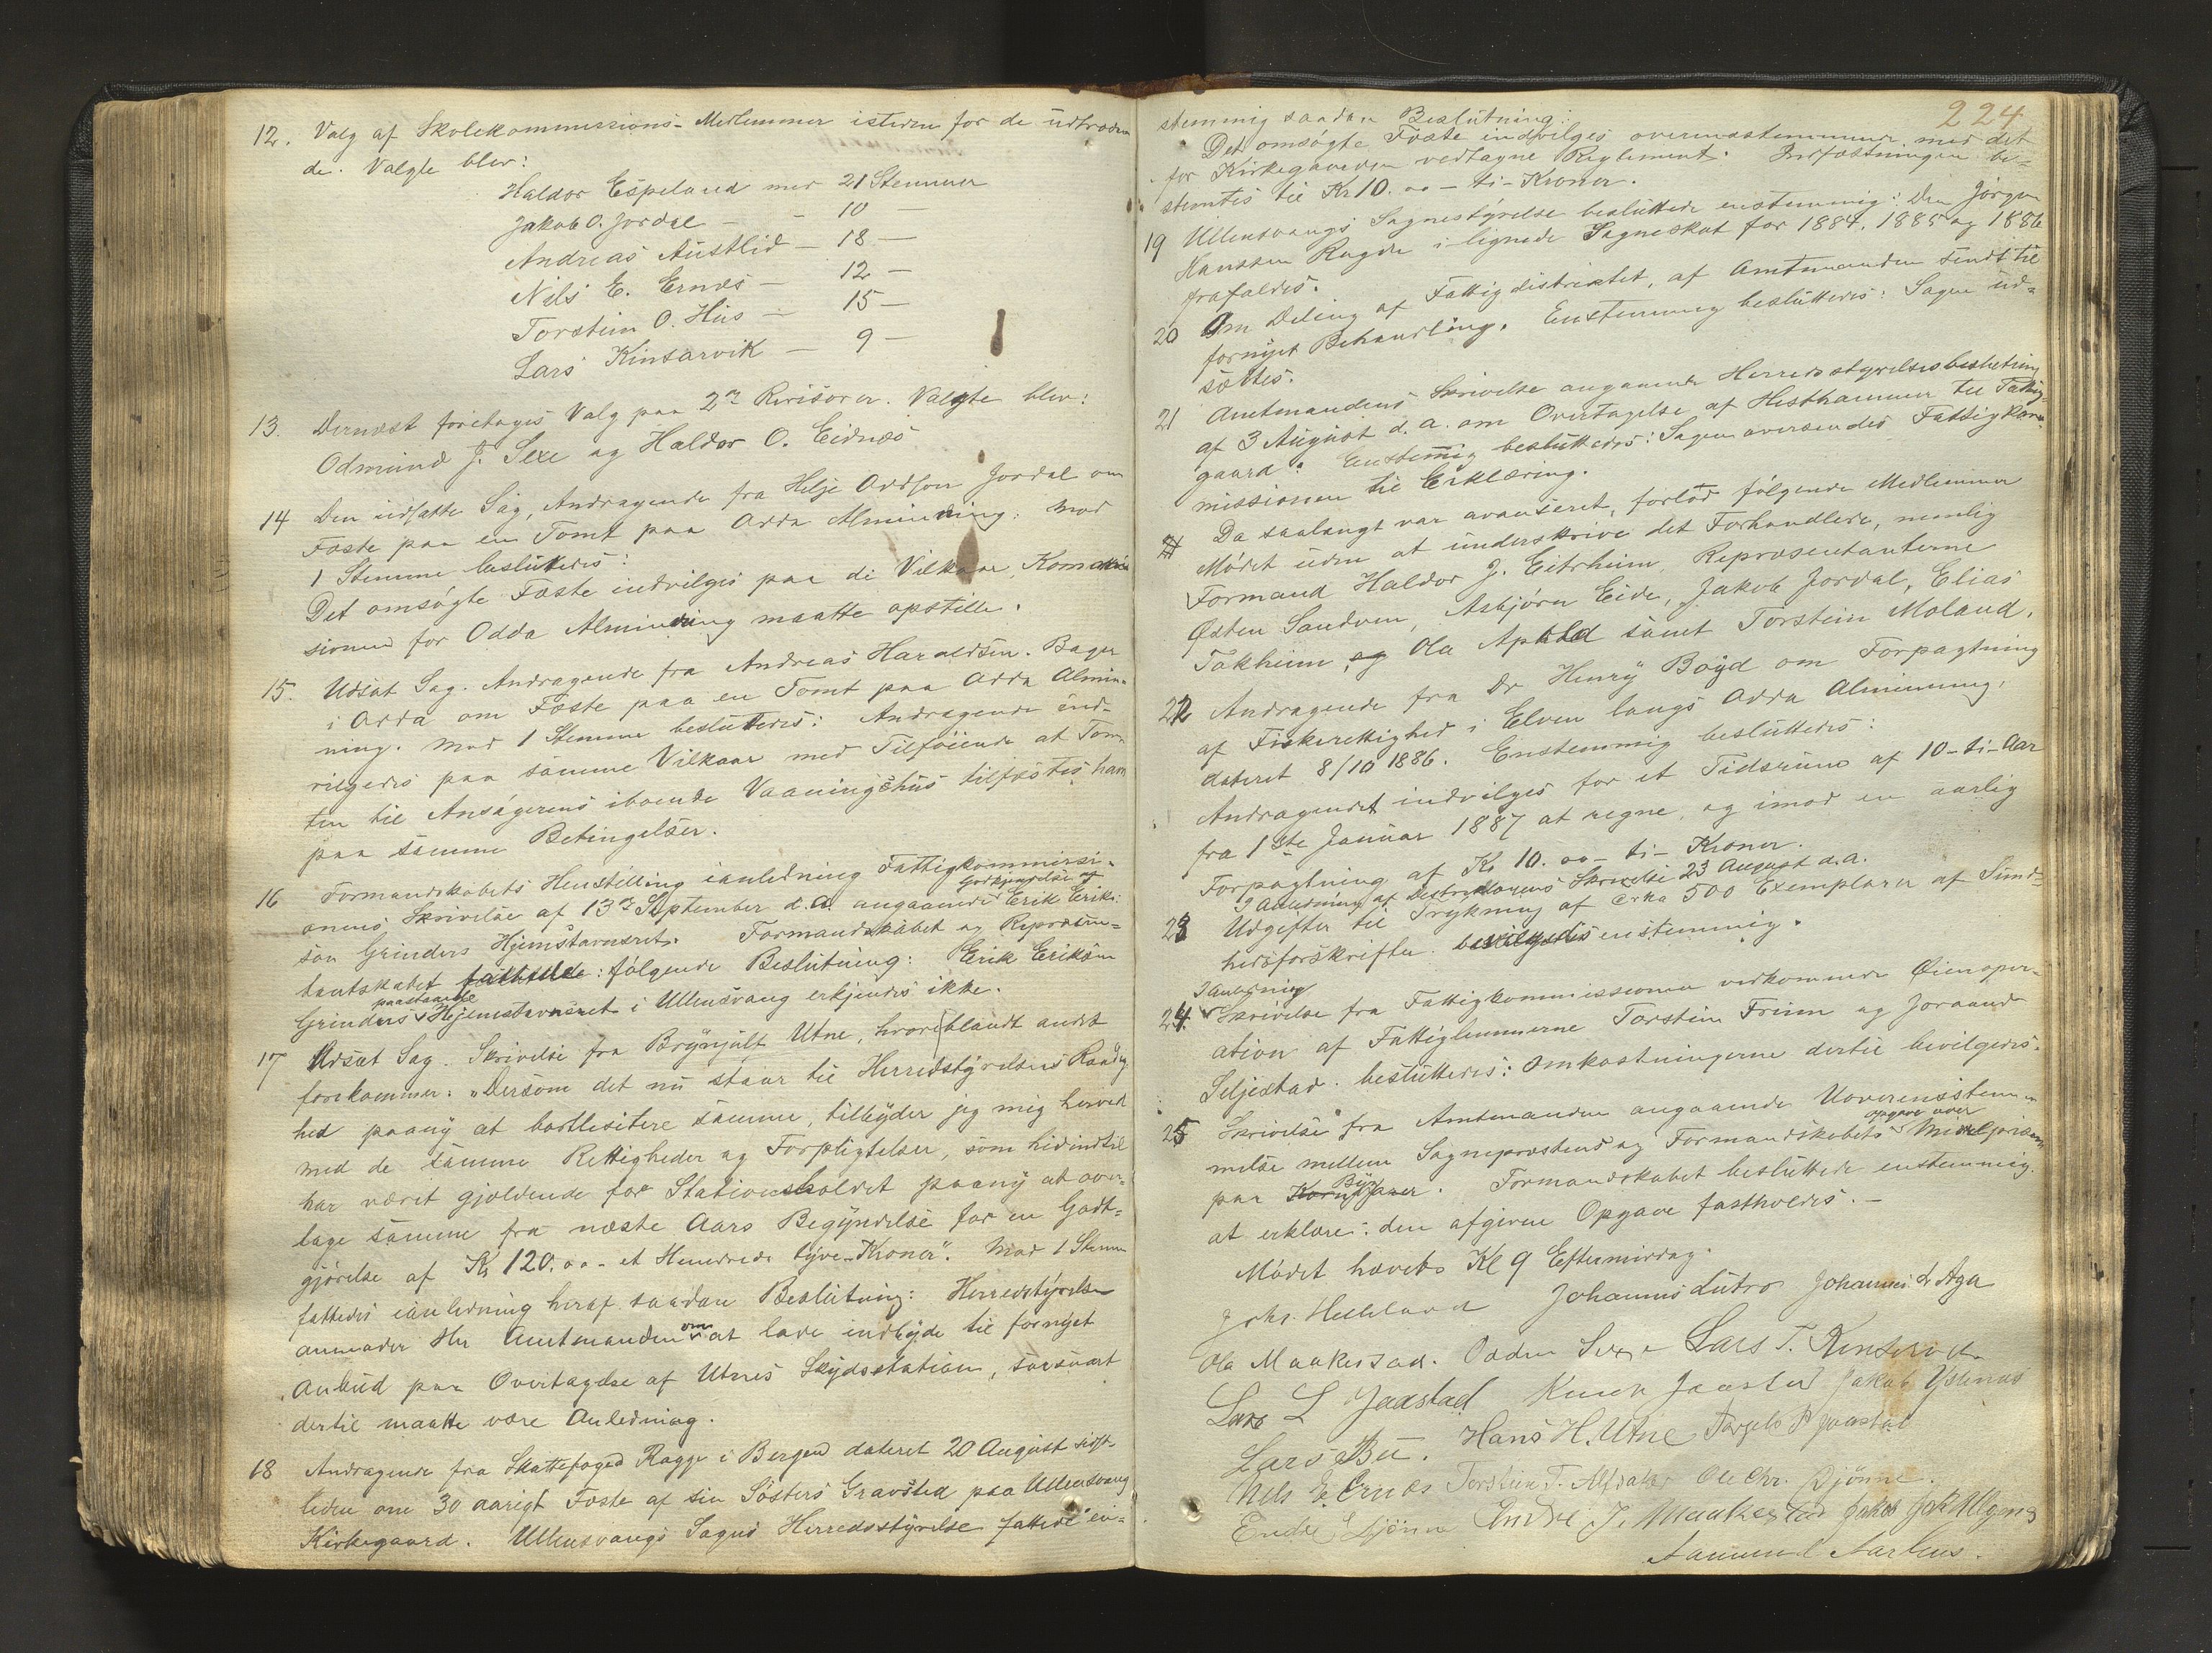 12. Valg af Skolekommissions-Medlemmer istedenfor de udtræden
de. Valgte blev:
Haldor Espeland med 21 Stemmer
Jakob O. Jordal – – 10 –
Andreas Austlid – 18 –
Nils E. Ernes – 12 –
Torstein O. Hus – 15 –
Lars Kinsarvik – 9 –
13. Dernæst foretoges Valg paa 2de Revisorer. Valgte blev:
Odmund J. Sexe og Haldor O. Eidnæs
14 Den udsatte Sag, Andragende fra Helje Oddsen Jordal om
Fæste paa en Tomt paa Odda Alminding. Mod
1 Stemme besluttedes:
Det omsøgte Fæste indvilges paa de Vilkaar, Kommis
sionen for Odda Alminding maatte opstille.
15. Udsat Sag. Andragende fra Andreas Haraldsen. Bager
i Odda om Fæste paa en Tomt paa Odda Almin-
ning. Mod 1 Stemme besluttedes: Andragende ind-
vilgedes paa samme Vilkaar med Tilføiende at Tom
ten til Ansøgerens iboende Vaaningshus tilfæstes ham
paa samme Betingelser.
16 Formandskabets Henstilling ianledning Fattigkommissi-
onens Skrivelse af 13de September d.A. angaaende Godkjendelse af Erik Eriks:
søn Grinders Hjemstavnsret. Formandskabet og Repræsen-
tantskabet fattede: følgende Beslutning: Erik Eriksøn
Grinders paastaaede Hjemstavnsret i Ullensvang erkjendes ikke.
17 Udsat Sag. Skrivelse fra Brynjulf Utne, hvori blandt andet
forekommer: „Dersom det nu staar til Herredstyrelsens Raadig
hed paany at bortlesitere samme, tilbyder jeg mig herved
med de samme Rettigheder og Forpligtelser, som hidindtil
har været gjældende for Stationsholdet paany at over-
tage samme fra næste Aars Begyndelse for en Godt-
gjørelse af Kr 120.00 – et Hundrede tyve – Kroner". Mod 1 Stemme
fattedes ianledning heraf saadan Beslutning: Herredstyrelsen
anmoder Hr Amtmanden om at lade indbyde til fornyet
Anbud paa Overtagelse af Utnes Skydsstation, saasnart
dertil maatte være Anledning.
18 Andragende fra Skattefoged Ragge i Bergen dateret 20 August sidst-
leden om 30 aarigt Fæste af sin Søsters Gravsted paa Ullensvang
Kirkegaard. Ullensvangs Sogns Herredsstyrelse fattede en-
224
stemmig saadan Beslutning:
Det omsøgte Fæste indvilges overensstemmende med det
for Kirkegaarden vedtagne Reglement. Indfæstningen be-
stemtes til Kr 10.00 – ti – Kroner.
19 Ullensvangs Sognestyrelse besluttede enstemmig: Den Jørgen
Hanssen Ragde i lignede Sogneskat for 1884, 1885 og 1886
frafaldes.
20 Om Deling af Fattigdistriktet, af Amtmanden sendt til
fornyet Behandling. Enstemmig besluttedes: Sagen ud-
sættes.
21 Amtmandens Skrivelse angaaende Herredsstyrelsesbeslutning
af 3 August d.a. om Overtagelse af Hesthammer til Fattig-
gaard: Enstemmig besluttedes: Sagen oversendes Fattigkom-
missionen til Erklæring.
Da saalangt var avanseret, forlod følgende Medlemmer
Mødet uden at underskrive det Forhandlede, nemlig
Formand Haldor J. Eitrheim, Repræsentanterne
Østen Sandven, Asbjørn Eide, Jakob Jordal, Elias
Tokheim, og Ola Apold samt Torstein Moland.
22 Andragende fra Dr Henry Boyd om Forpagtning
af Fiskerettighed i Elven langs Odda Alminning,
dateret 8/10 1886. Enstemmig besluttedes:
Andragendet indvilges for et Tidsrum af 10 – ti – Aar
fra 1ste Januar 1887 at regne, og imod en aarlig
Forpagtning af Kr 10.00 – ti – Kroner.
I Anledning af Distriktslægens Skrivelse 23 August d.a.
23 Udgifter til Trykning af cirka 500 Exemplarer af Sund-
hedsforskrifter bevilgedes enstemmig.
I Anledning
24. Skrivelse fra Fattigkommissionen vedkommende Øienoper-
ation af Fattiglemmerne Torstein Freim og Joraand
Seljestad. besluttedes: Omkostningerne dertil bevilgedes.
25 Skrivelse fra Amtmanden angaaende Uoverensstem
melse mellem Sognepræstens og Formandskabets opgave over Middelpriserne
paa Korn Byg Varer. Formandskabet besluttede enstemmig
at erklære: den afgivne Opgave fastholdes. –
Mødet hævets Kl 9 Eftermiddag.
Johs. Helleland Johannes Lutro Johannes L Aga
Ola Maakestad. Odden Sexe Lars T. Kinservik
Lars L Jaastad Knud Jaastad Jakob Ystenæs
Lars Bu. Hans H. Utne Torgils P Jaastad
Nils E. Ernæs Torstein T. Alsaker Ole Chr. Djønne.
Endre E Djønne Endre J. Maakestad Jakob
Aamund Aarhus.